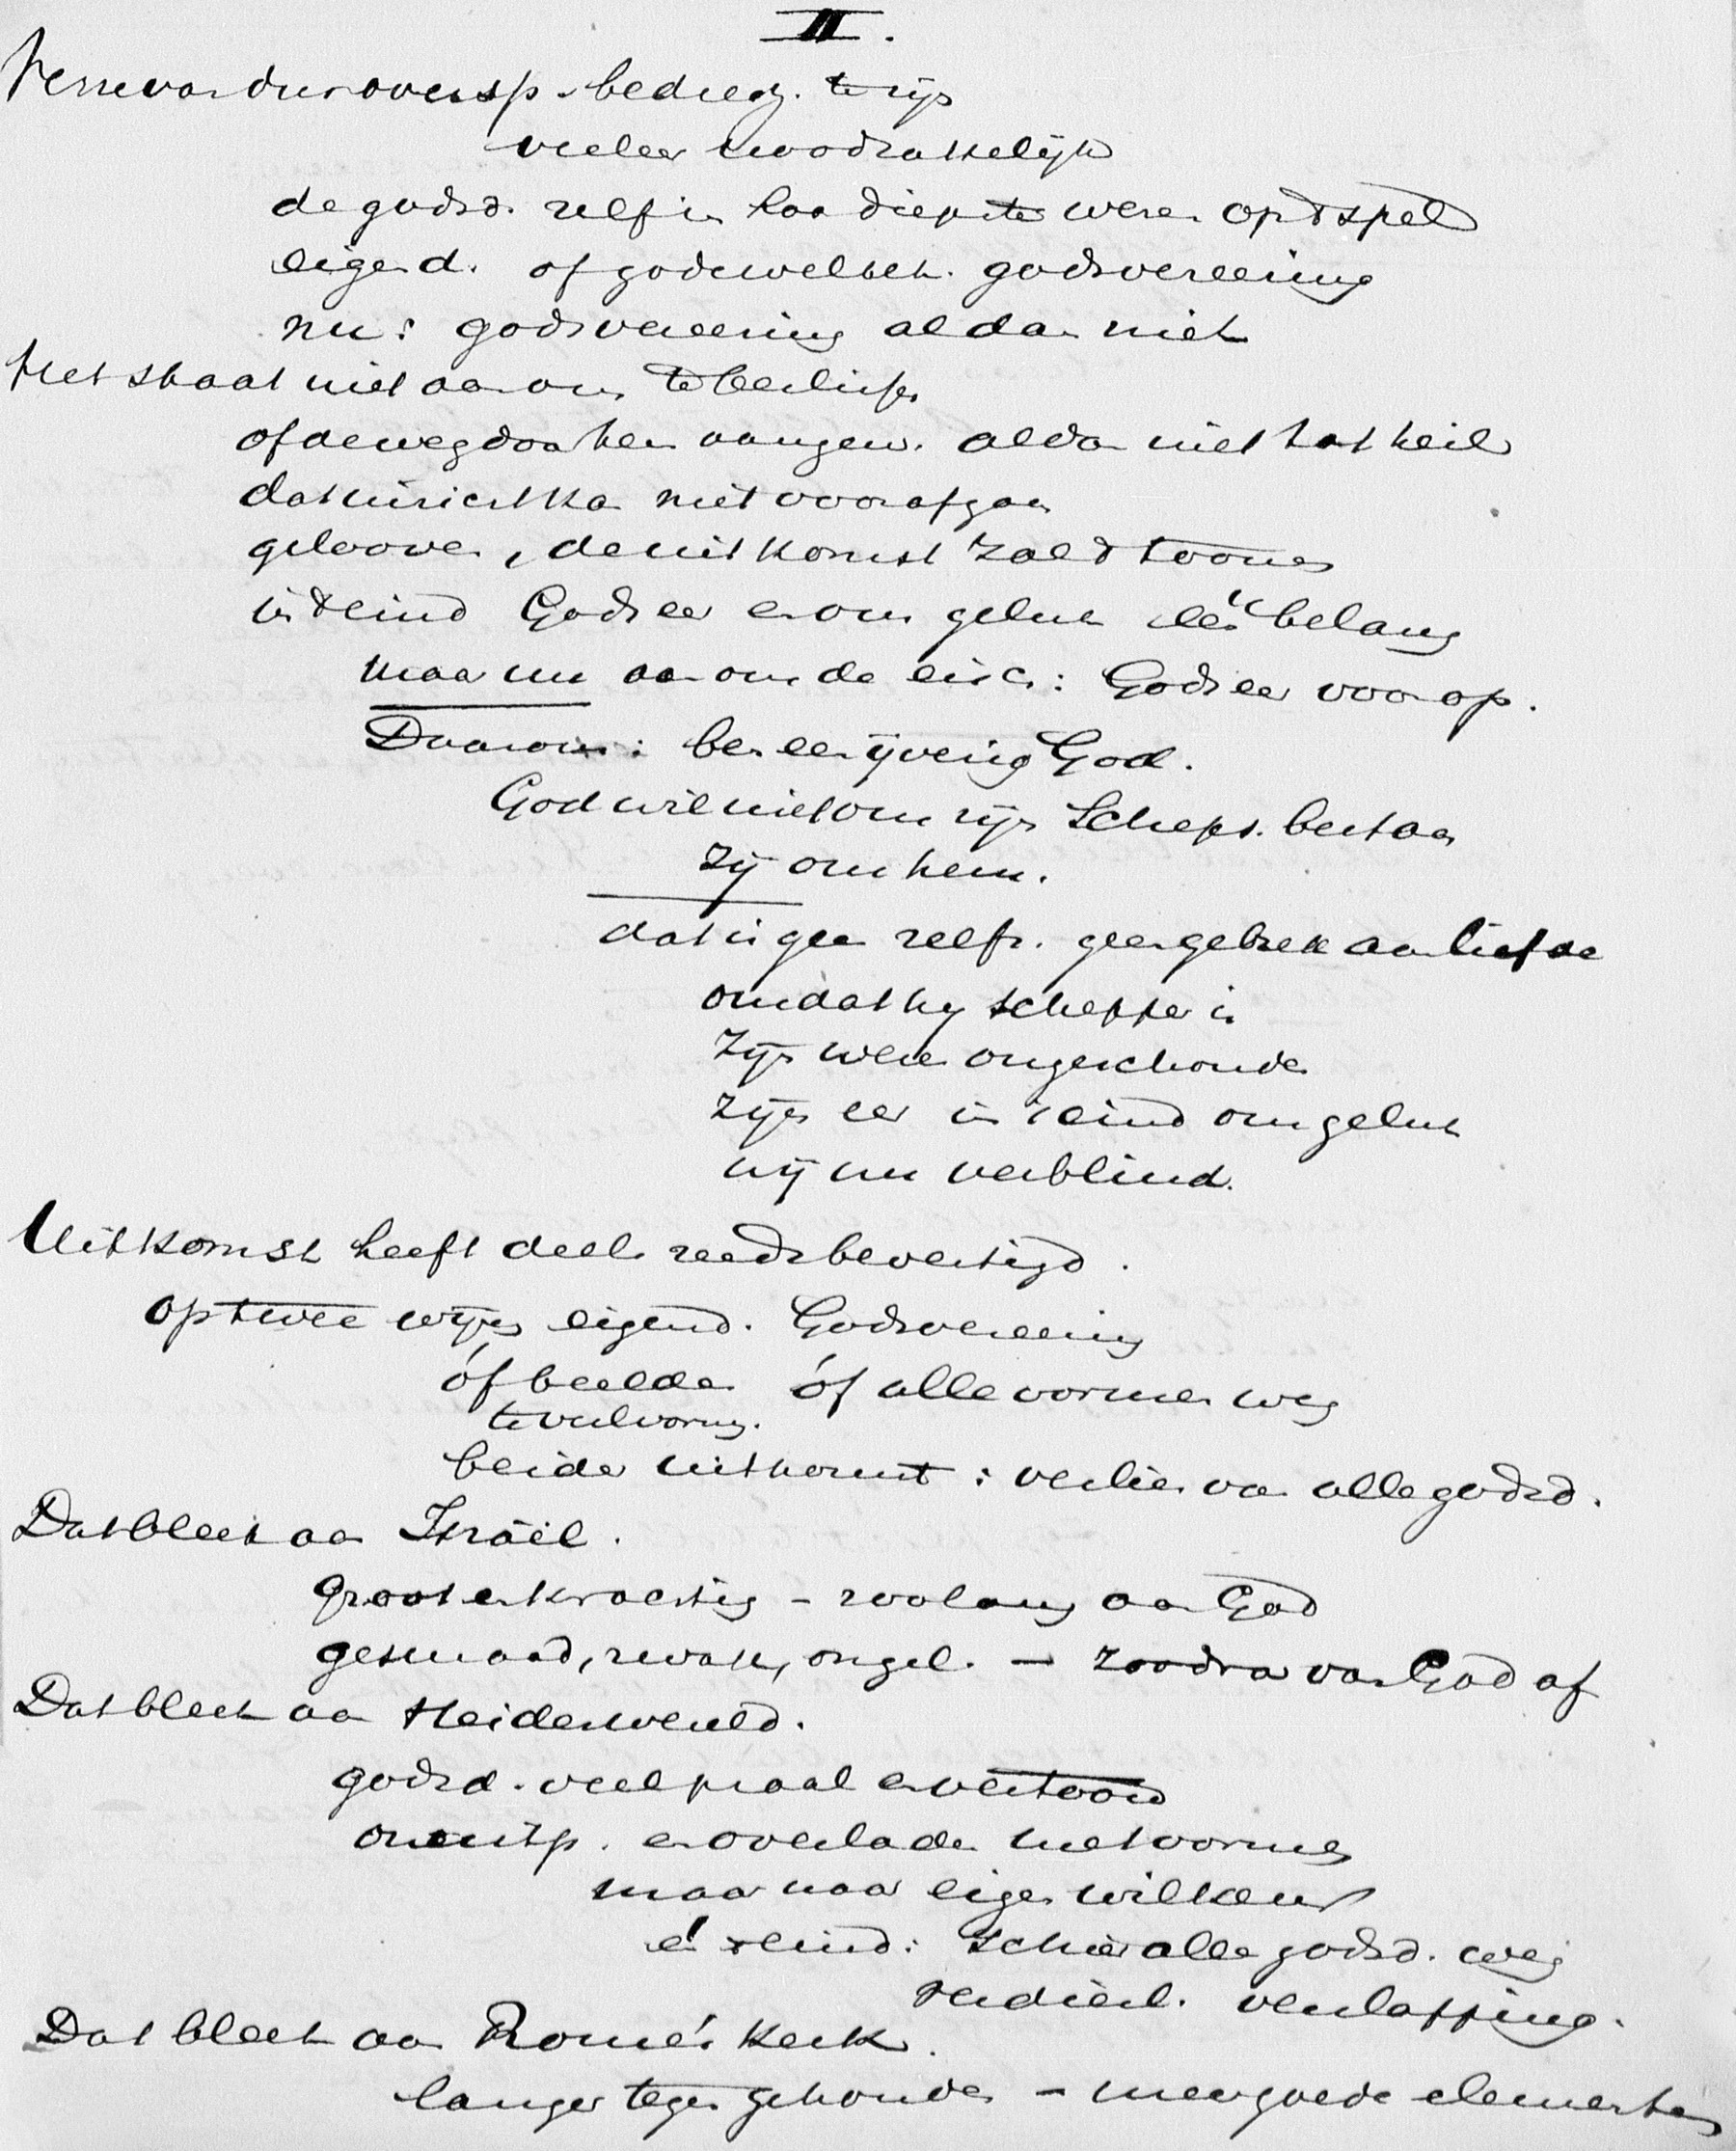 II.
Verre van dus oversp. bedrieg. te zijn
veeleer noodzakelijk
de godsd. zelf in haar diepste wezen op 't spel
eigend. of godewelbeh. godsvereering
nu: godsvereering al dan niet
Het staat niet aan ons te beslissen
of de weg door hen aangew. al dan niet tot heil
dat inzicht kan niet voorafgaan
gelooven, de uitkomst zal 't toonen
in 't eind Gods eer en ons geluk één belang
maar nu aan ons de eisch: Gods eer voorop.
Daarom: ben een ijverig God.
God wil niet om zijn Scheps. bestaan
zij om hem.
dat is geen zelfz. geen gebrek aan liefde
omdat hij schepper is
Zijn wezen ongeschonden
zijn eer in 't eind ons geluk
wij nu verblind.
Uitkomst heeft deels reeds bevestigd.
op twee wijzen eigend. Godsvereering
óf beelden óf alle vormen weg
te veel vorm.
beider uitkomst: verlies van alle godsd.
Dat bleek aan Israël.
groot en krachtig – zoolang aan God
gesmaad, zwak, ongel. – zoodra van God af
Dat bleek aan Heidenwereld.
godsd. veel praal en vertoon
en overladen met vormen
maar naar eigen willekeur
én 't eind: schier alle godsd. weg
zedúel. verslapping.
Dat bleek aan Rome's Kerk.
langer tegengehouden – meer goede elementen